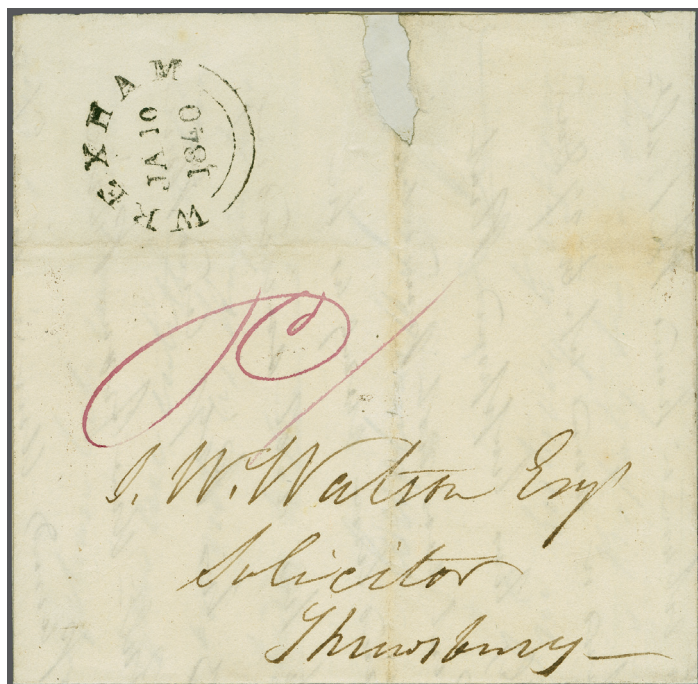 WREXHAM
JA 10
1840
J. W. Watson Esqr
Solicitor
Shrewsbury